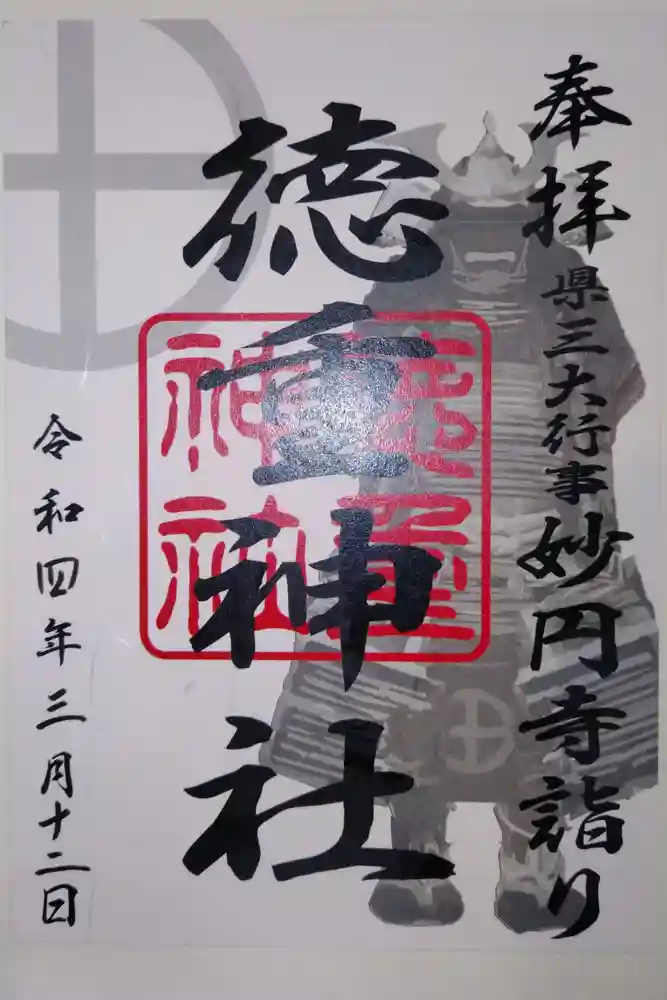 奉拝 県三大行事 妙円寺詣り
徳重神社
徳重神社
令和四年三月十二日